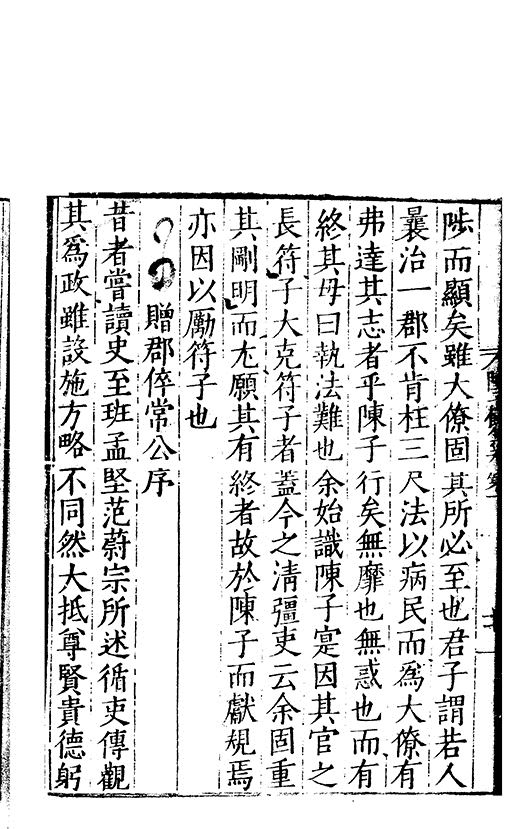 陟而顯矣雖大僚固其所必至也君子謂若人
曩治一郡不肯枉三尺法以病民而爲大僚有
弗達其志者乎陳子行矣無靡也無惑也而有
終其母曰執法難也余始識陳子寔因其官之
長符子大克符子者蓋今之淸彊吏云余固重
其剛明而尤願其有終者故於陳子而獻規焉
亦因以勵符子也
贈郡倅常公序
昔者嘗讀史至班孟堅范蔚宗所述循吏傳觀
其爲政雖設施方略不同然大抵尊賢貴德躬